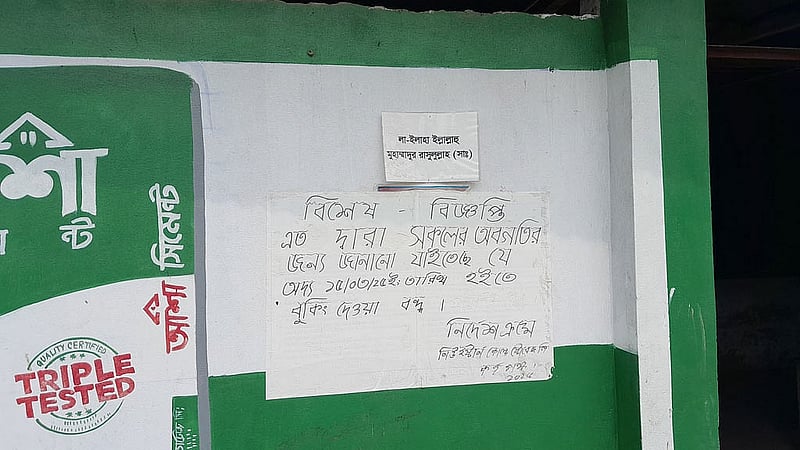 লা-ইলাহা ইল্লাল্লাহু
মুহাম্মাদুর রাসুলুল্লাহ (সাঃ)
বিশেষ - বিজ্ঞেপ্তি
এত দ্বারা সকলের অবগতির
জন্য জানানো যাইতেছে যে
অদ্য ১৫/০৩/২৫ইং তারিখ হইতে
বুকিং দেওয়া বন্ধ।
নির্দেশক্রমে
২০২৫
শা
ন্ট
আশা সিমেন্ট
QUALITY CERTIFIED
TRIPLE
TESTED